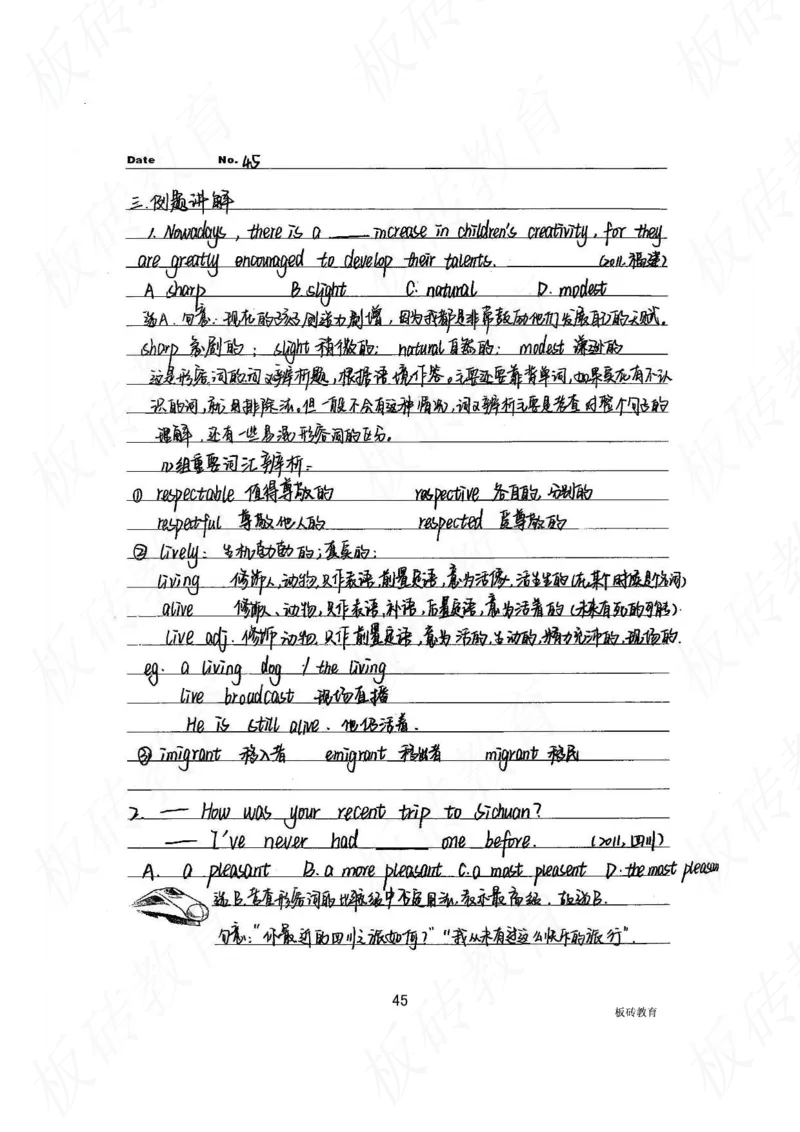 Date No. 45
三.例题讲解
1. Nowadays, there is a ____ increase in children's creativity, for they
are greatly encouraged to develop their talents. (2011.福建)
A sharp B. slight C. natural D. modest
选A. 句意: 现在的孩子创造力剧增, 因为我都是非常鼓励他们发展自己的天赋。
sharp 急剧的; slight 稍微的; natural 自然的; modest 谦逊的
这是形容词的词义辨析题, 根据语境作答。主要还要靠背单词, 如果实在有不认
识的词, 就用排除法。但一般不会有这种情况, 词义辨析主要是考查对整个句子的
理解, 还有一些易混形容词的区分。
几组重要词汇辨析:
① respectable 值得尊敬的 respective 各自的, 分别的
respectful 尊敬他人的 respected 受尊敬的
② lively: 生机勃勃的; 真实的;
living 修饰人, 动物, 只作表语, 前置定语, 意为活像, 活生生的(在某个时候是名词)
alive 修饰人、动物, 只作表语, 补语, 后置定语, 意为活着的 (本来有死的可能).
live adj. 修饰动物, 只作前置定语, 意为活的, 生动的, 精力充沛的, 现场的.
eg. a living dog / the living
live broadcast 现场直播
He is still alive. 他仍活着.
③ imigrant 移入者 emigrant 移出者 migrant 移民
2. — How was your recent trip to Sichuan?
— I've never had ____ one before. (2011, 四川)
A. a pleasant B. a more pleasant C. a most pleasent D. the most pleasan
选B. 考查形容词的比较级中否定用法, 表示最高级, 故选B.
句意: "你最近的四川之旅如何?" "我从未有过这么快乐的旅行".
45
板砖教育